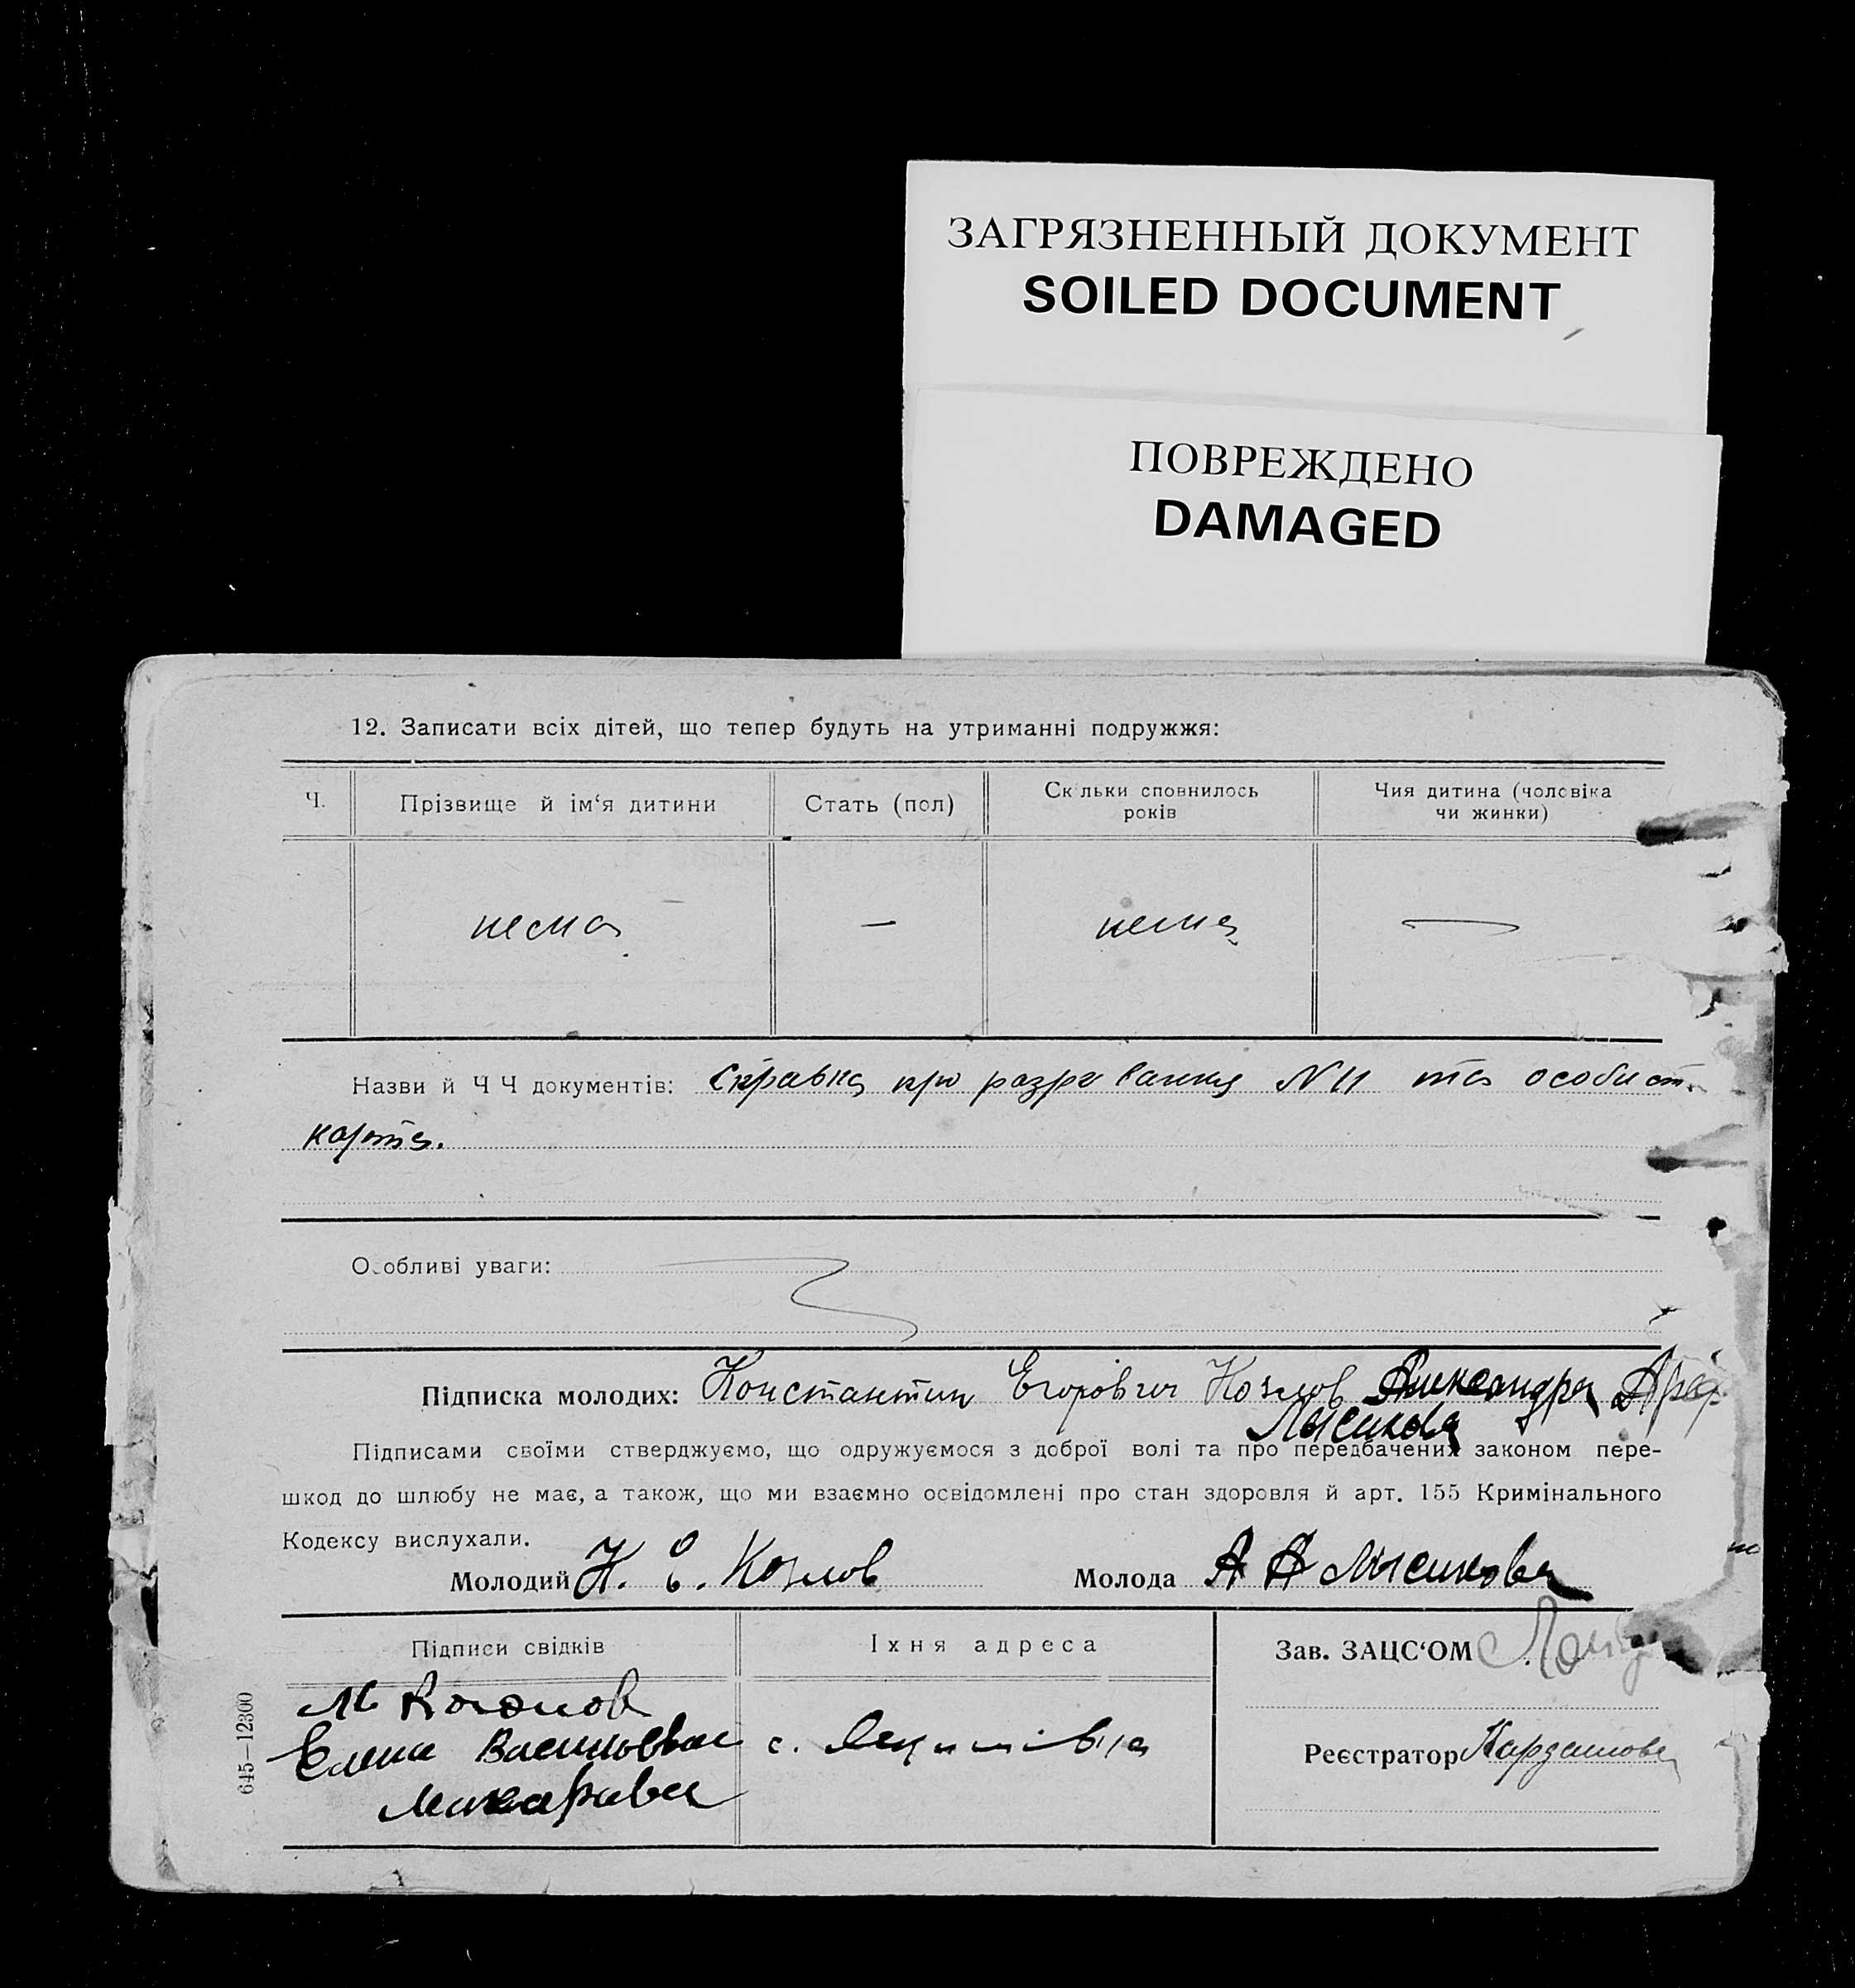 ЗАГРЯЗНЕННЫЙ ДОКУМЕНТ
SOILED DOCUMENT
ПОВРЕЖДЕНО
DAMAGED
12. Записати всіх дітей, що тепер будуть на утриманні подружжя:
Ч. Прізвище й ім‘я дитини Стать (пол) Скільки сповнилось років Чия дитина (чоловіка чи жинки)
нема — нема —
Назви й Ч Ч документів: Справка про N 11 та особист
карта.
Особливі уваги:
Підписка молодих: Константин Егорович Козлов Александра
Лысикова
Підписами своїми стверджуємо, що одружуємося з доброї волі та про передбачених законом пере-
шкод до шлюбу не має, а також, що ми взаємно освідомлені про стан здоровля й арт. 155 Кримінального
Кодексу вислухали.
Молодий К. Е. Козлов Молода А А Лысикова
Підписи свідків Їхня адреса Зав. ЗАЦС‘ОМ
М
Елена Васильевна с.
Макарова
Реєстратор Кардашова
645—12300